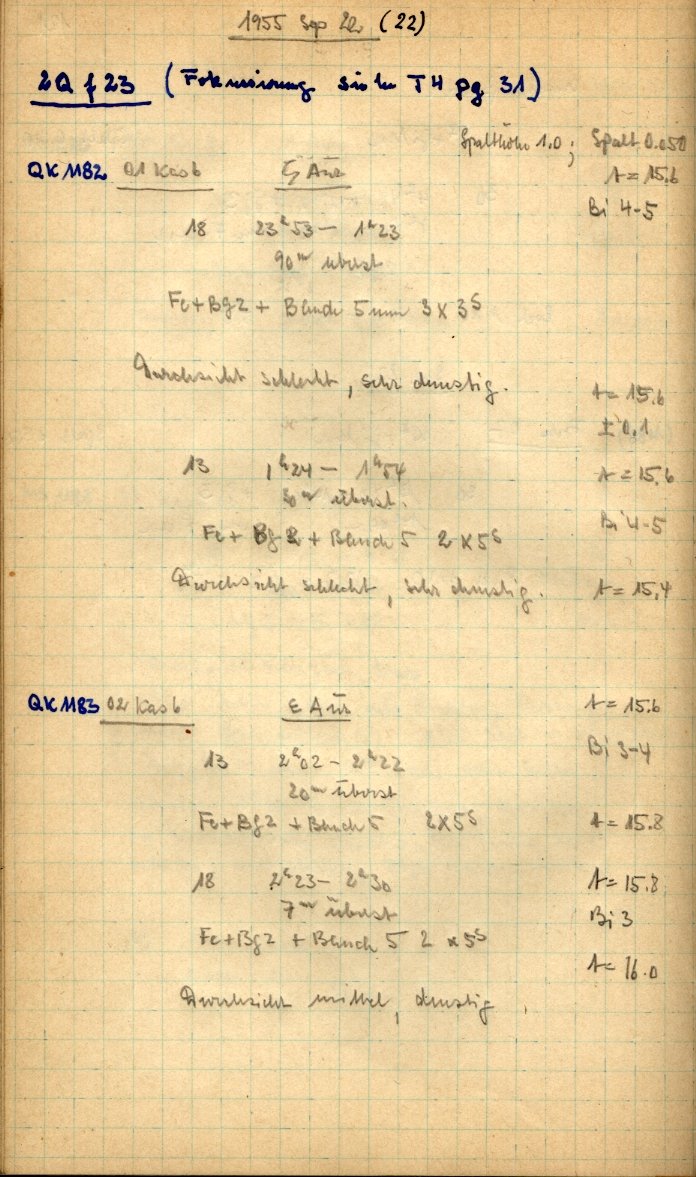 1955 Sep 22 (22)
2Q f 23 (Fokussierung siehe T4 pg 31)
Spalthöhe 1.0; Spalt 0.050
QK 1182 01 Kas 6 ζ Aur t = 15.6
Bi 4-5
18 23ʰ53 – 1ʰ23
90ᵐ überst
Fe + Bg 2 + Blende 5 mm 3 x 3ˢ
Durchsicht schlecht, sehr dunstig.
t = 15.6
± 0.1
13 1ʰ24 – 1ʰ54 t = 15.6
30ᵐ überst.
Bi 4-5
Fe + Bg 2 + Blende 5 2 x 5ˢ
Durchsicht schlecht, sehr dunstig. t = 15.4
QK 1183 02 Kas 6 ε Aur t = 15.6
Bi 3-4
13 2ʰ02 – 2ʰ22
20ᵐ überst
Fe + Bg 2 + Blende 5 2 x 5ˢ t = 15.8
18 2ʰ23 – 2ʰ30 t = 15.8
7ᵐ überst Bi 3
Fe + Bg 2 + Blende 5 2 x 5ˢ
t = 16.0
Durchsicht mittel, dunstig